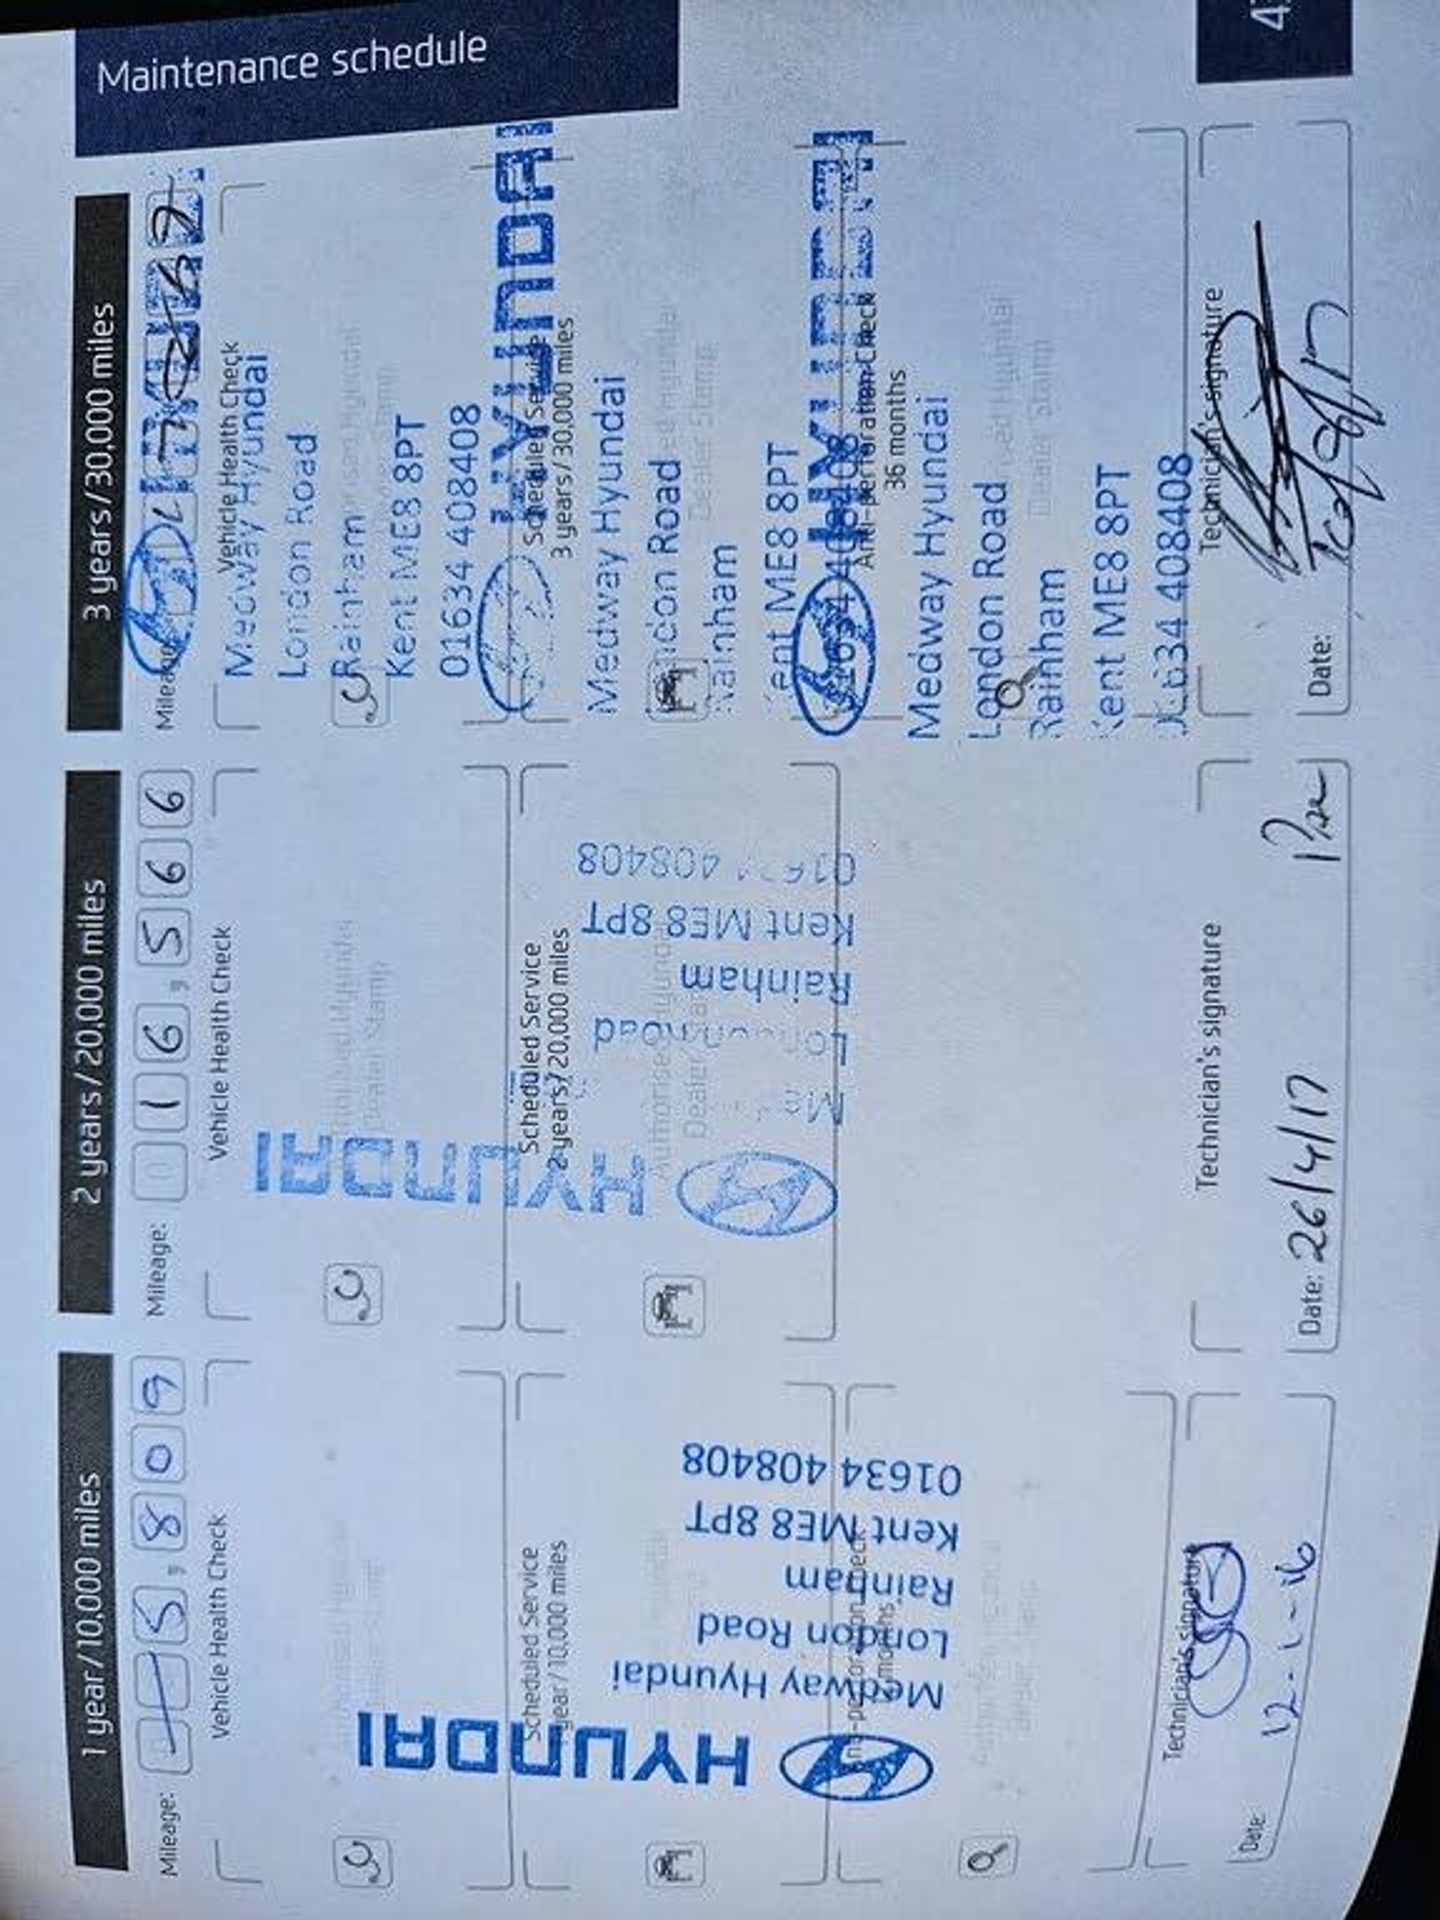 Maintenance schedule
1 year/10,000 miles
Mileage: 5,809
Vehicle Health Check
Scheduled Service
year/10,000 miles
HYUNDAI
Medway Hyundai
London Road
Rainham
Kent ME8 8PT
01634 408408
Technician's signature
Date: 12-1-16
2 years/20,000 miles
Mileage: 16,566
Vehicle Health Check
Authorised Hyundai
Dealer Stamp
Scheduled Service
2 years/20,000 miles
Authorised Hyundai
Dealer
HYUNDAI
London Road
Rainham
Kent ME8 8PT
408408
Technician's signature
Date: 26/4/17
3 years/30,000 miles
Mileage:
Vehicle Health Check
Medway Hyundai
London Road
Rainham
Kent ME8 8PT
01634 408408
HYUNDAI
Scheduled Service
3 years/30,000 miles
Medway Hyundai
London Road
Dealer Stamp
Rainham
Kent ME8 8PT
01634 408408
HYUNDAI
Anti-perforation Check
36 months
Medway Hyundai
London Road
Dealer Stamp
Rainham
Kent ME8 8PT
01634 408408
Technician's signature
Date: